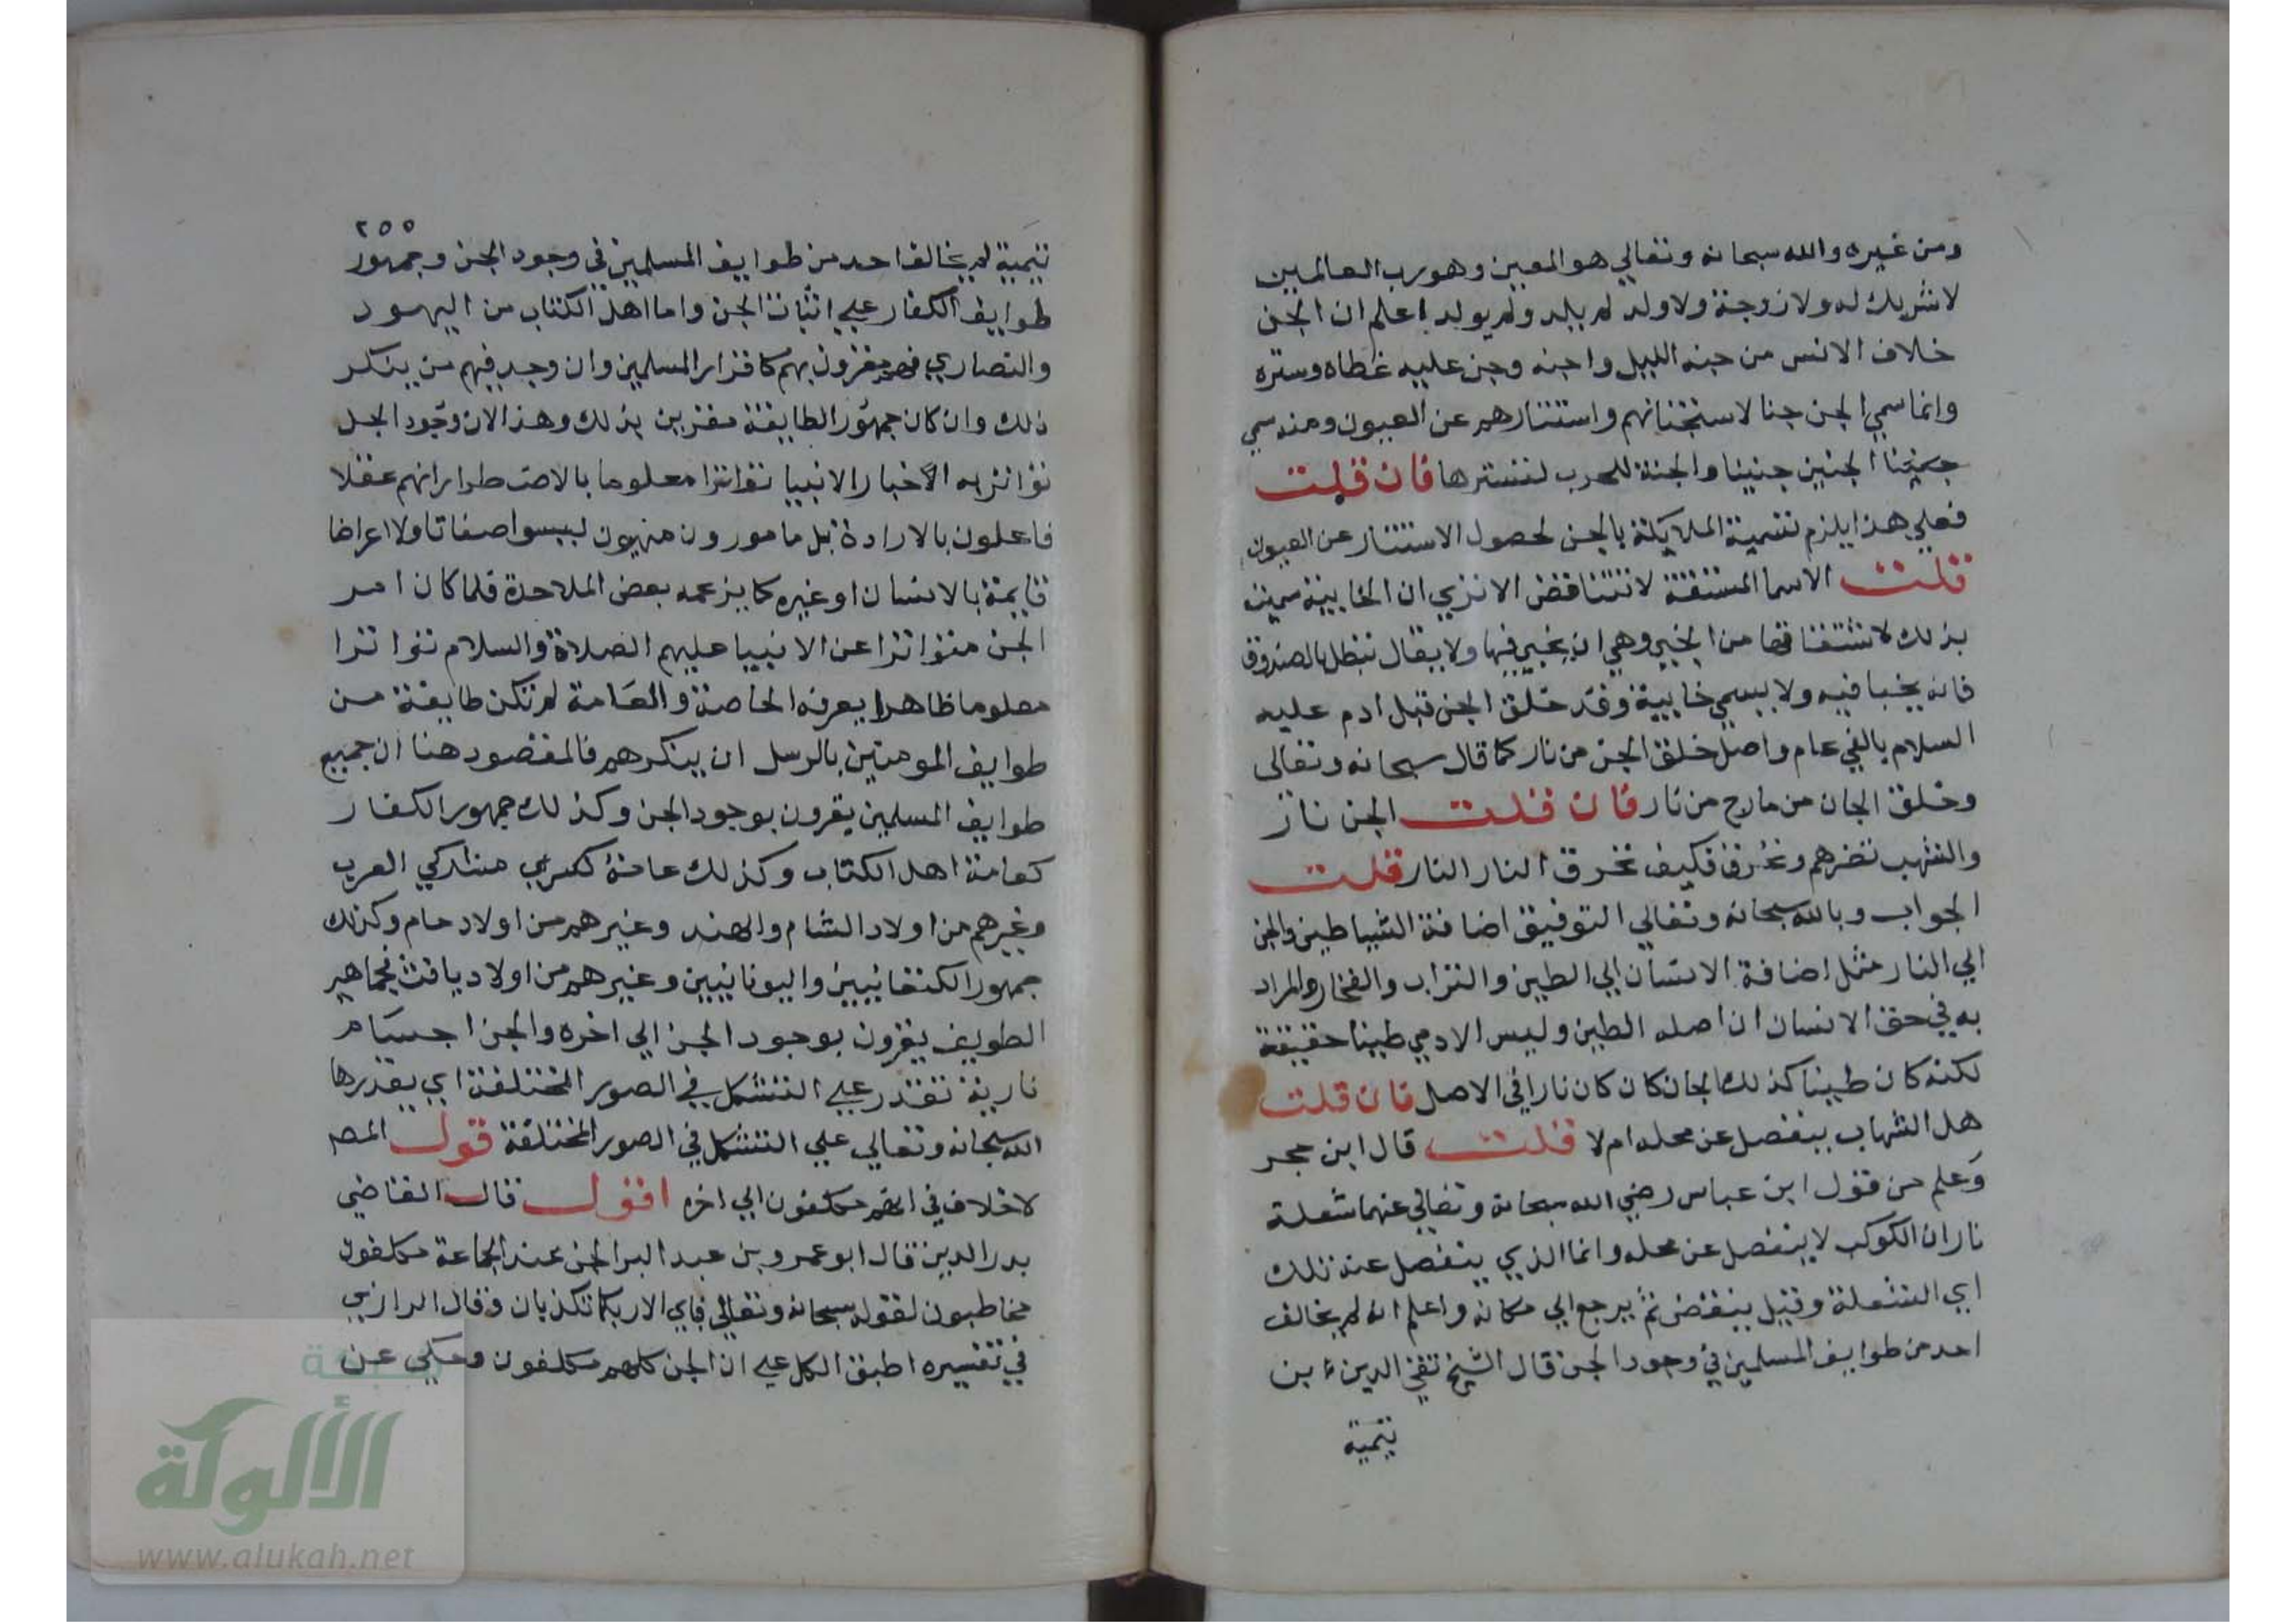 ومن غيره والله سبحانه وتعالي هو المعين وهو رب العالمين
لا شريك له ولا زوجة ولا ولد لم يلد ولم يولد اعلم ان الجن
خلاف الانس من جنه الليل واجنه وجن عليه غطاه وستره
وانما سمي الجن جنا لاستجنانهم واستتارهم عن العيون ومنه سمي
الجنين جنينا والجنة للحرب لتسترها فان قلت
فعلي هذا يلزم تسمية الملايكة بالجن لحصول الاستتار عن العيون
قلت الاسما المشتقة لا تتناقض الا تري ان الخابية سميت
بذلك لاشتقاقها من الخبي وهي ان يخبي فيها ولا يقال تبطل بالصندوق
فانه يخبا فيه ولا يسمي خابية وقد خلق الجن قبل ادم عليه
السلام بالفي عام واصل خلق الجن من نار كما قال سبحانه وتعالي
وخلق الجان من مارج من نار فان قلت الجن نار
والشهب تضرهم وتحرق فكيف تحرق النار النار قلت
الجواب وبالله سبحانه وتعالي التوفيق اضافة الشياطين والجن
الي النار مثل اضافة الانسان الي الطين والتراب والفخار والمراد
به في حق الانسان ان اصله الطين وليس الادمي طينا حقيقة
لكنه كان طينا كذلك الجان كان كان نارا في الاصل فان قلت
هل الشهاب ينفصل عن محله ام لا قلت قال ابن حجر
وعلم من قول ابن عباس رضي الله سبحانه وتعالي عنهما شعلة
نار ان الكوكب لا ينفصل عن محله وانما الذي ينفصل عنه تلك
اي الشعلة وقيل ينقض ثم يرجع الي مكانه واعلم انه لم يخالف
احد من طوايف المسلمين في وجود الجن قال الشيخ تقي الدين بن
تيمية
٢٥٥
تيمية لم يخالف احد من طوايف المسلمين في وجود الجن وجمهور
طوايف الكفار علي اثبات الجن واما اهل الكتاب من اليهود
والنصاري فهم يقرون بهم كاقرار المسلمين وان وجد فيهم من ينكر
ذلك وان كان جمهور الطايفة مقرين بذلك وهذا لان وجود الجن
تواتر به الاخبار الانبيا تواترا معلوما بالاضطرار انهم عقلا
فاعلون بالارادة بل مامورون منهيون ليسوا صفاتا ولا اعراضا
قايمة بالانسان او غيره كما يزعمه بعض الملاحدة فلما كان امر
الجن متواترا عن الانبيا عليهم الصلاة والسلام تواترا
معلوما ظاهرا يعرفه الخاصة والعامة لم تكن طايفة من
طوايف المومنين بالرسل ان ينكرهم فالمقصود هنا ان جميع
طوايف المسلمين يقرون بوجود الجن وكذلك جمهور الكفار
كعامة اهل الكتاب وكذلك عامة مشركي العرب
وغيرهم من اولاد الشام والهند وغيرهم من اولاد حام وكذلك
جمهور الكنعانيين واليونانيين وغيرهم من اولاد يافث فجماهير
الطويف يقرون بوجود الجن الي اخره والجن اجسام
نارية تقدر علي التشكل في الصور المختلفة اي يقدرها
الله سبحانه وتعالي علي التشكل في الصور المختلفة قول المص
لا خلاف في انهم مكلفون الي اخره اقول قال القاضي
بدر الدين قال ابو عمرو بن عبد البر الجن عند الجماعة مكلفون
مخاطبون لقوله سبحانه وتعالي فباي الا ربكما تكذبان وقال الرازي
في تفسيره اطبق الكل علي ان الجن كلهم مكلفون وحكي عن
شبكة
الألوكة
www.alukah.net